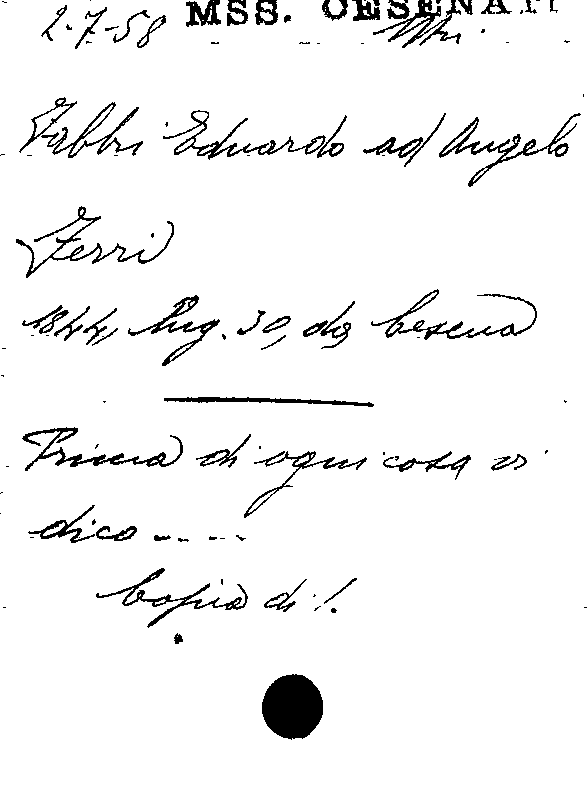 2-7-58 MSS. CESENATI
Fabbri Eduardo ad Angelo
Ferri
1844, lug. 30, da Cesena
Prima di ogni cosa vi
dico .....
Copia di